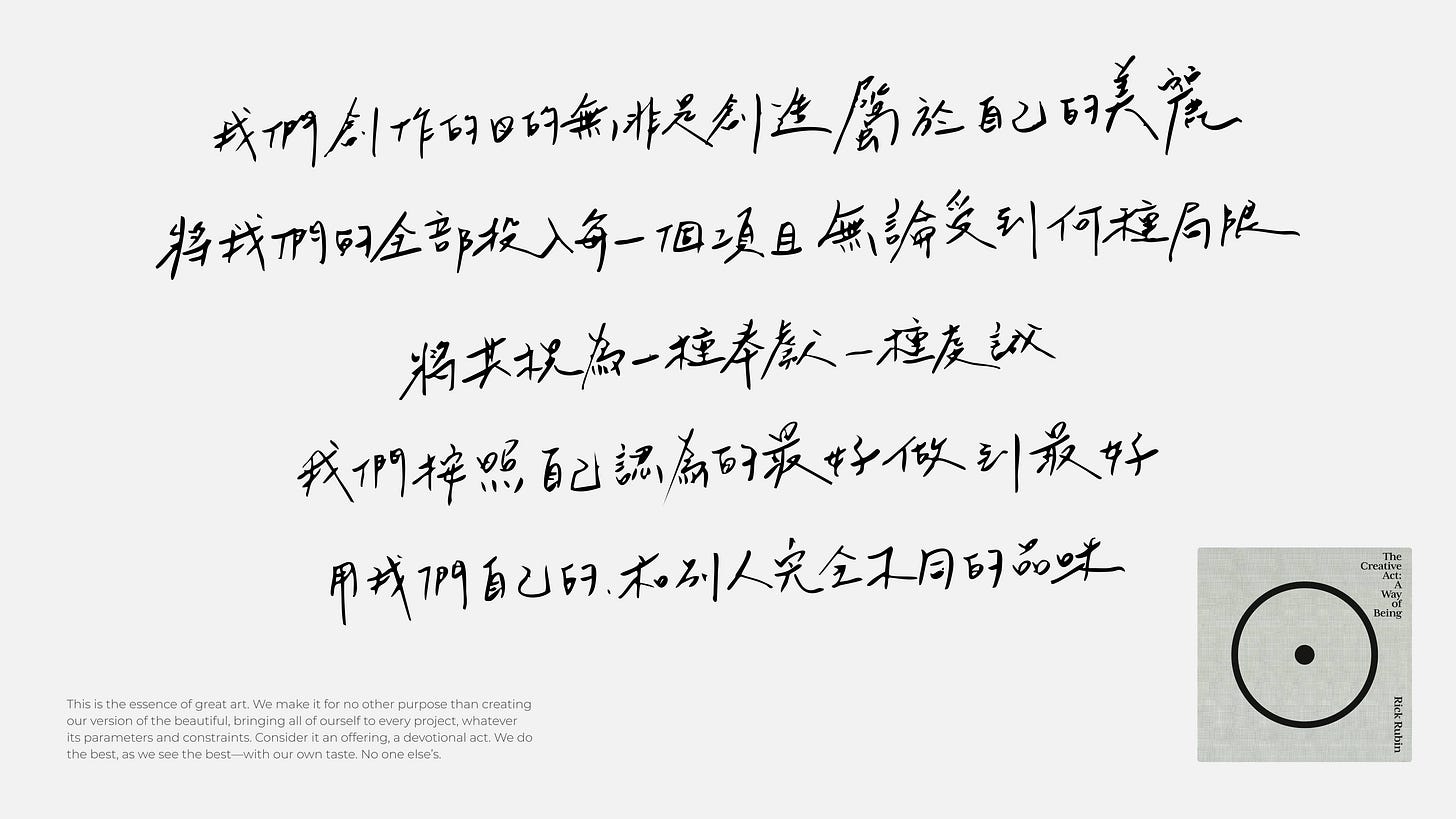 我們創作的目的無非是創造屬於自己的美麗
將我們的全部投入每一個項目無論受到何種局限
將其視為一種奉獻一種虔誠
我們按照自己認為的最好做到最好
用我們自己的.和別人完全不同的品味
This is the essence of great art. We make it for no other purpose than creating
our version of the beautiful, bringing all of ourself to every project, whatever
its parameters and constraints. Consider it an offering, a devotional act. We do
the best, as we see the best—with our own taste. No one else’s.
The
Creative
Act:
A
Way
of
Being
Rick Rubin